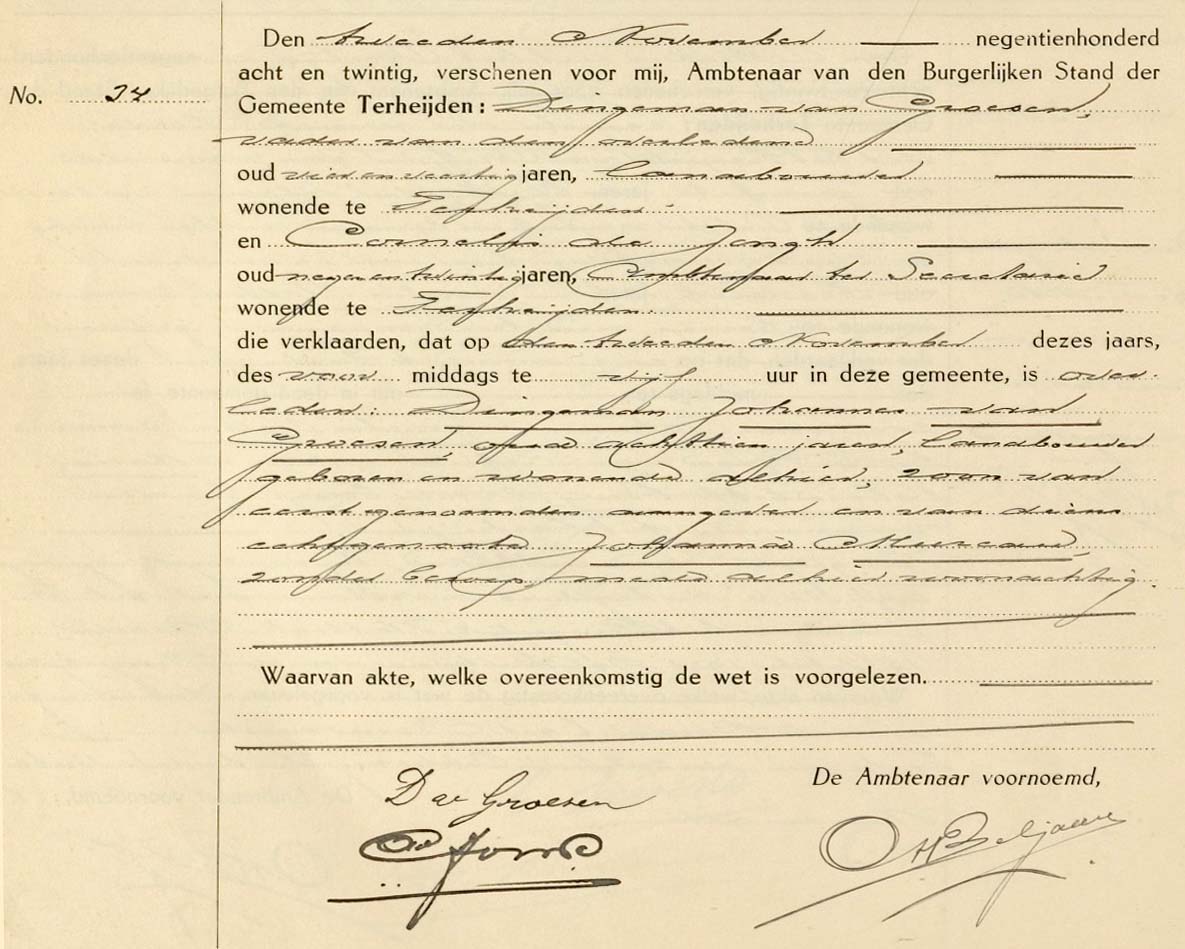 Den tweeden November negentienhonderd
acht en twintig, verschenen voor mij, Ambtenaar van den Burgerlijken Stand der
No. 34 Gemeente Terheijden: Dingeman van Groesen,
vader van den overledene
oud vier en veertig jaren, landbouwer
wonende te Terheijden.
en Cornelis de Jongh
oud negen en twintig jaren, Ambtenaar ter Secretarie
wonende te Terheijden.
die verklaarden, dat op den tweeden November dezes jaars,
des voor middags te vijf uur in deze gemeente, is over-
leden: Dingeman Johannes van
Groesen, oud achttien jaren, landbouwer
geboren en wonende alhier, zoon van
eerstgenoemden aangever en van diens
echtgenoote Johanna
zonder beroep, mede alhier woonachtig.
Waarvan akte, welke overeenkomstig de wet is voorgelezen.
De Ambtenaar voornoemd,
D v Groesen